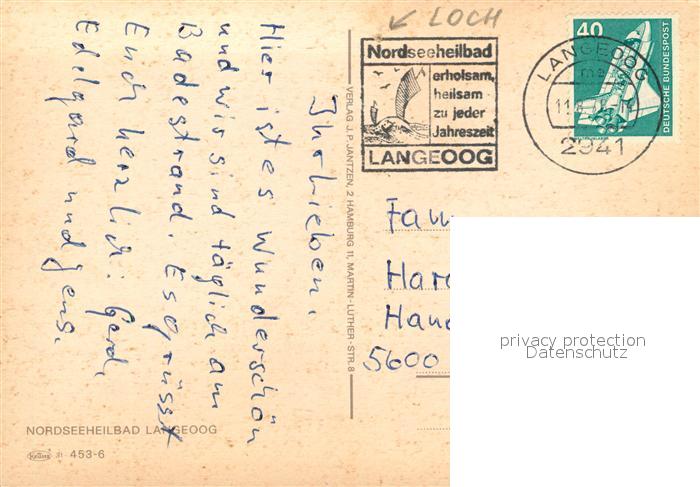 LOCH
40
DEUTSCHE BUNDESPOST
LANGEOOG
2941
Nordseeheilbad
erholsam,
heilsam
zu jeder
Jahreszeit
LANGEOOG
Ihr Lieben.
Hier ist es wunderschön
und wir sind täglich am
Badestrand. Es grüsst
Euch herzlich: Gerd,
Edelgard und Jens.
VERLAG J. P. JANTZEN, 2 HAMBURG 11, MARTIN-LUTHER-STR. 8
Fam
Har
Han
5600
privacy protection
Datenschutz
NORDSEEHEILBAD LANGEOOG
453-6